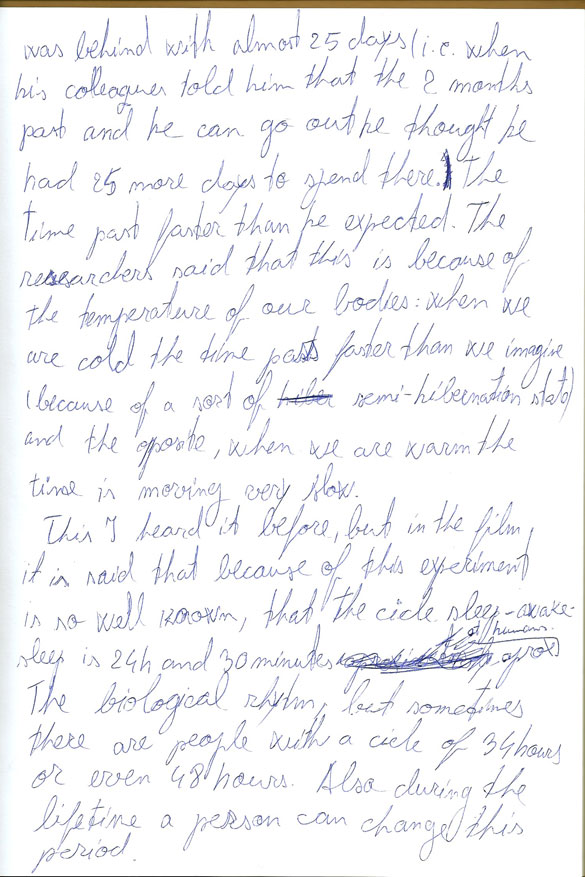 was behind with almost 25 days (i.e. when
his colleagues told him that the 2 months
past and he can go out he thought he
had 25 more days to spend there.) The
time past faster than he expected. The
researchers said that this is because of
the temperature of our bodies: when we
are cold the time pasts faster than we imagine
(because of a sort of hiber semi-hibernation state)
and the oposite, when we are warm the
time is moving very slow.
This I heard it before, but in the film,
it is said that because of this experiment
is so well known, that the cicle sleep-awake-
of humans.
sleep is 24h and 30 minutes
The biological rhytm, but sometimes
there are people with a cicle of 34 hours
or even 48 hours. Also during the
lifetime a person can change this
period.